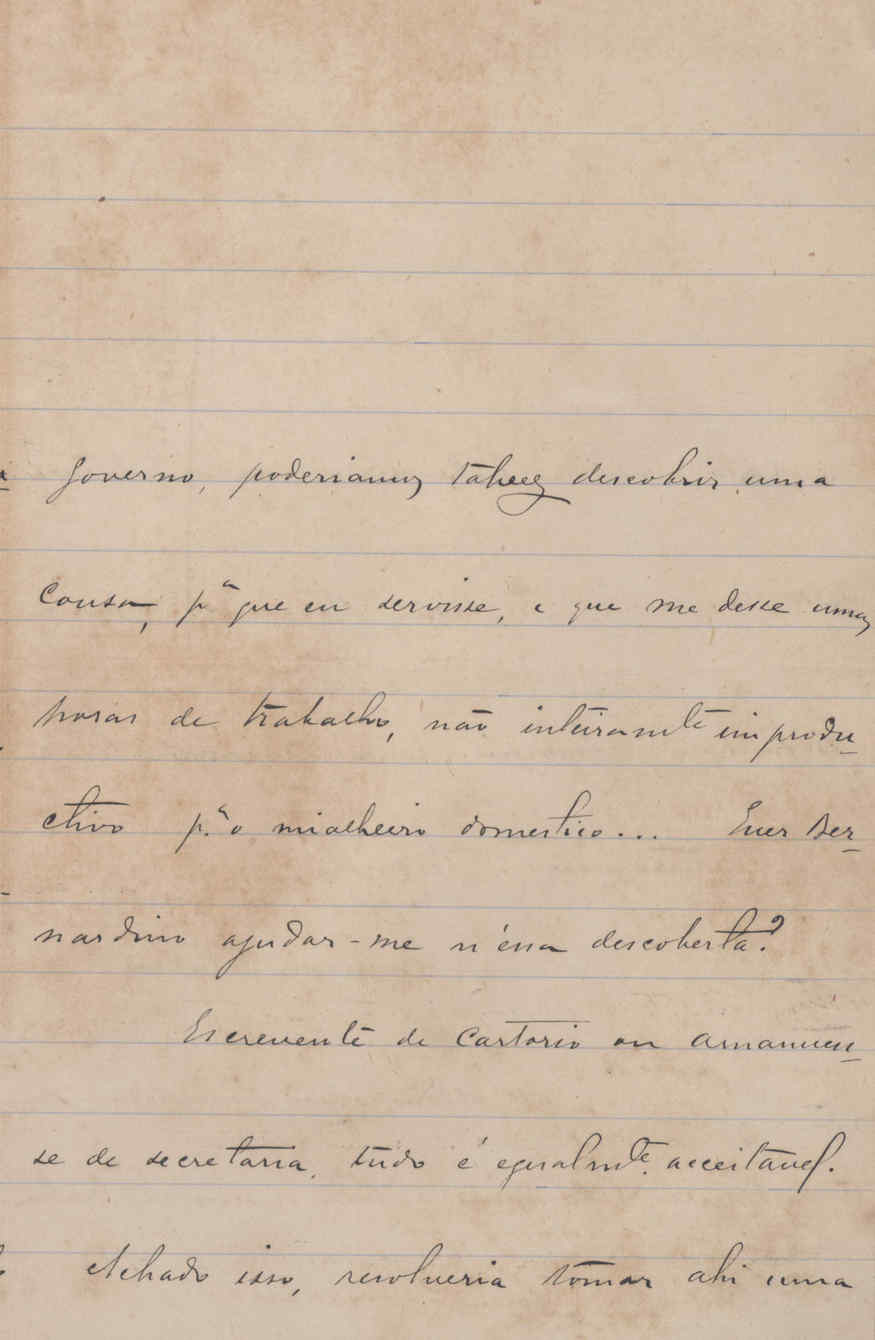 Governo, poderiamos talvez descobrir uma
cousa, pª que eu servisse, e que me desse umas
horas de trabalho, não inteiramte improdu-
ctivo p.ª o mialheiro domestico... Quer Ber-
nardino ajudar-me n'essa descoberta?
Escrevente de Cartorio ou amanuen-
se de secretaria, tudo é egualmte. acceitavel.
Achado isso, resolveria tomar ahi uma